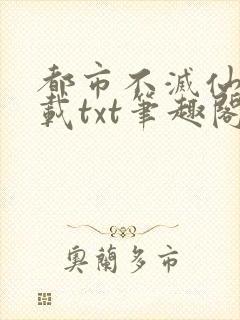 都市不滅仙
載txt筆趣閣
奧蘭多市